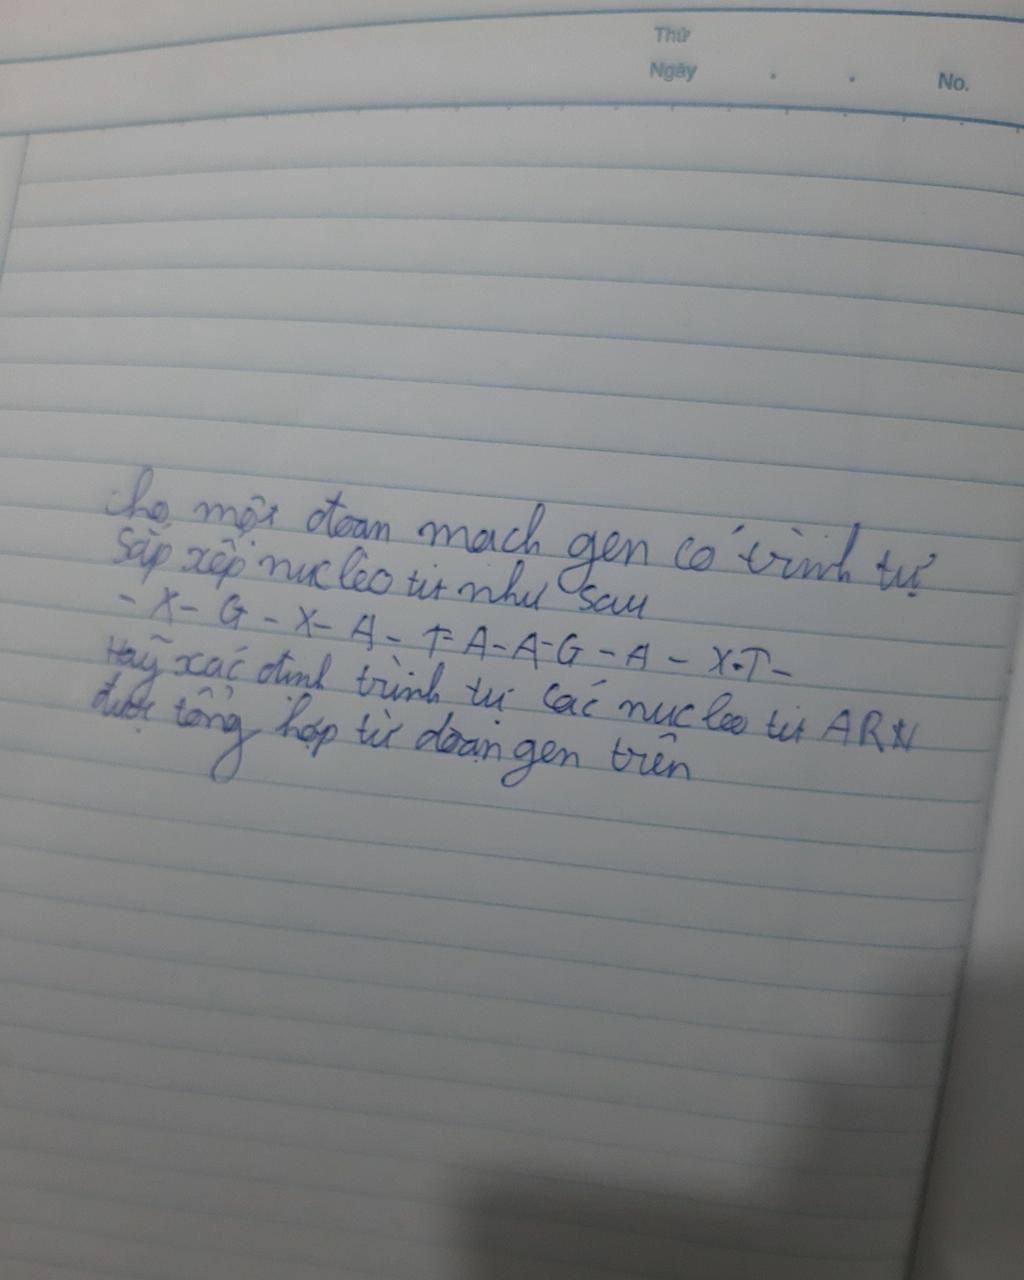 Thứ
Ngày . . No.
cho một đoạn mạch gen có trình tự
sắp xếp nucleo tit như sau
- X - G - X - A - T - A - A - G - A - X - T -
Hãy xác định trình tự các nucleo tit ARN
được tổng hợp từ đoạn gen trên